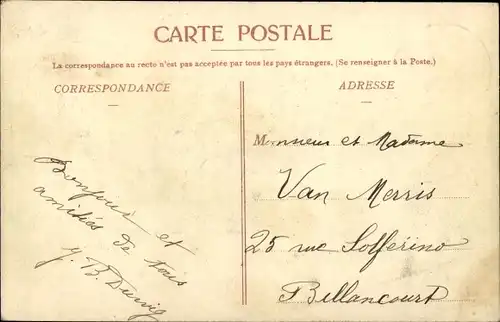 CARTE POSTALE
La correspondance au recto n'est pas acceptée par tous les pays étrangers. (Se renseigner à la Poste.)
CORRESPONDANCE
ADRESSE
Bonjour et
amitiés de tous
J. B.
Monsieur et Madame
Van Merris
25 rue Solférino
Billancourt